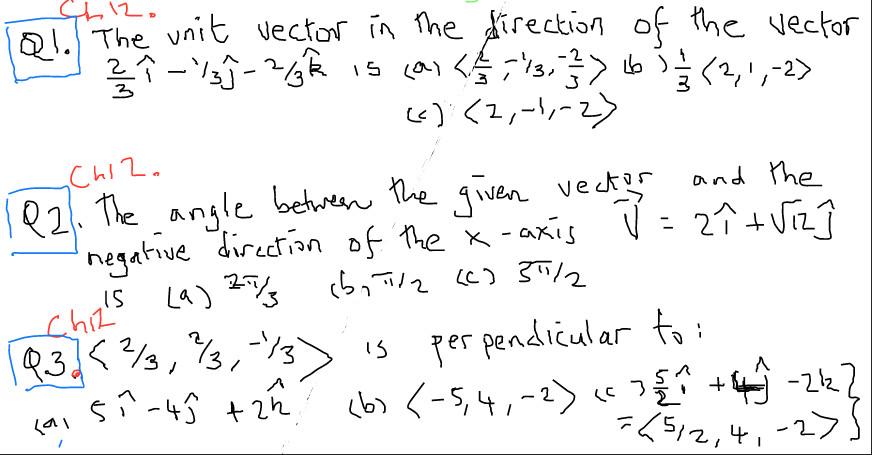 Ch12.
Q1. The unit vector in the direction of the vector
2/3 î - 1/3 ĵ - 2/3 k̂ is (a) <2/3, -1/3, -2/3> (b) 1/3 <2, 1, -2>
(c) <2, -1, -2>
Ch12.
Q2. The angle between the given vector and the
negative direction of the x-axis V⃗ = 2î + √12 ĵ
is (a) 2π/3 (b) π/2 (c) 3π/2
Ch12
Q3. <2/3, 2/3, -1/3> is perpendicular to:
(a) 5î - 4ĵ + 2k̂ (b) <-5, 4, -2> (c) 5/2 î + 4ĵ - 2k }
= <5/2, 4, -2> }